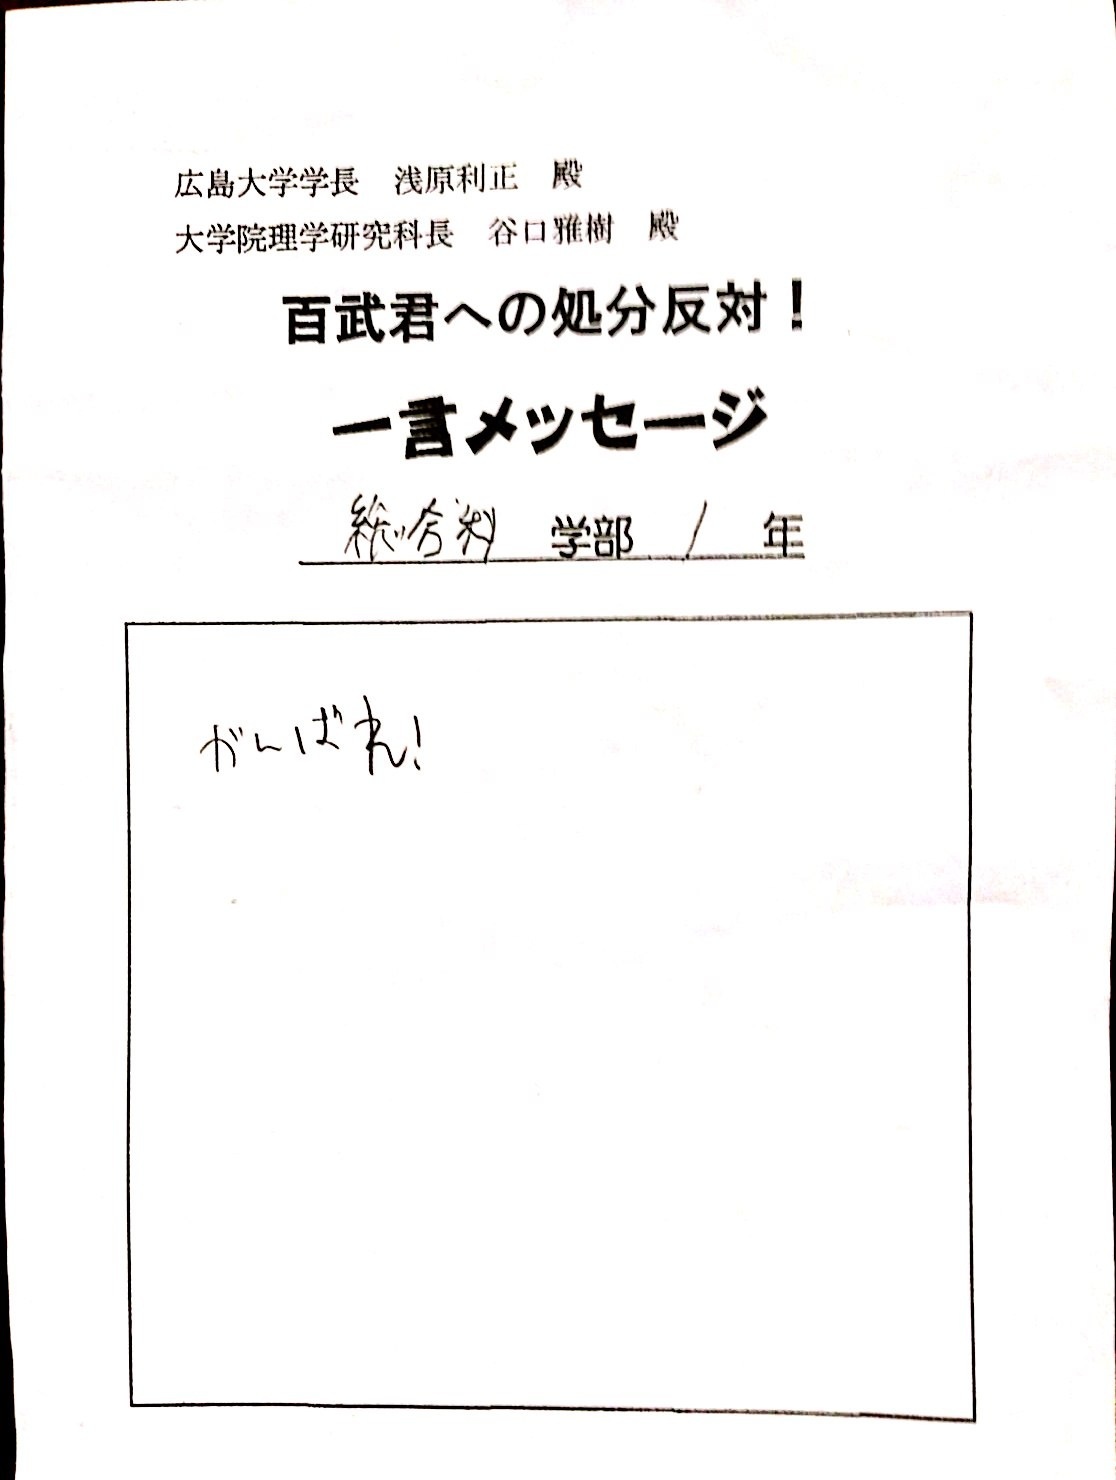 広島大学学長　浅原利正　殿
大学院理学研究科長　谷口雅樹　殿
百武君への処分反対！
一言メッセージ
総合科 学部 1 年
がんばれ!